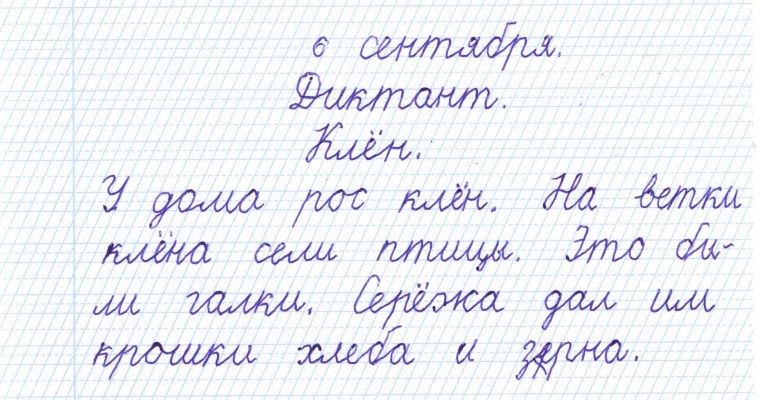 6 сентября.
Диктант.
Клён.
У дома рос клён. На ветки
клёна сели птицы. Это би-
ли галки. Серёжа дал им
крошки хлеба и зерна.